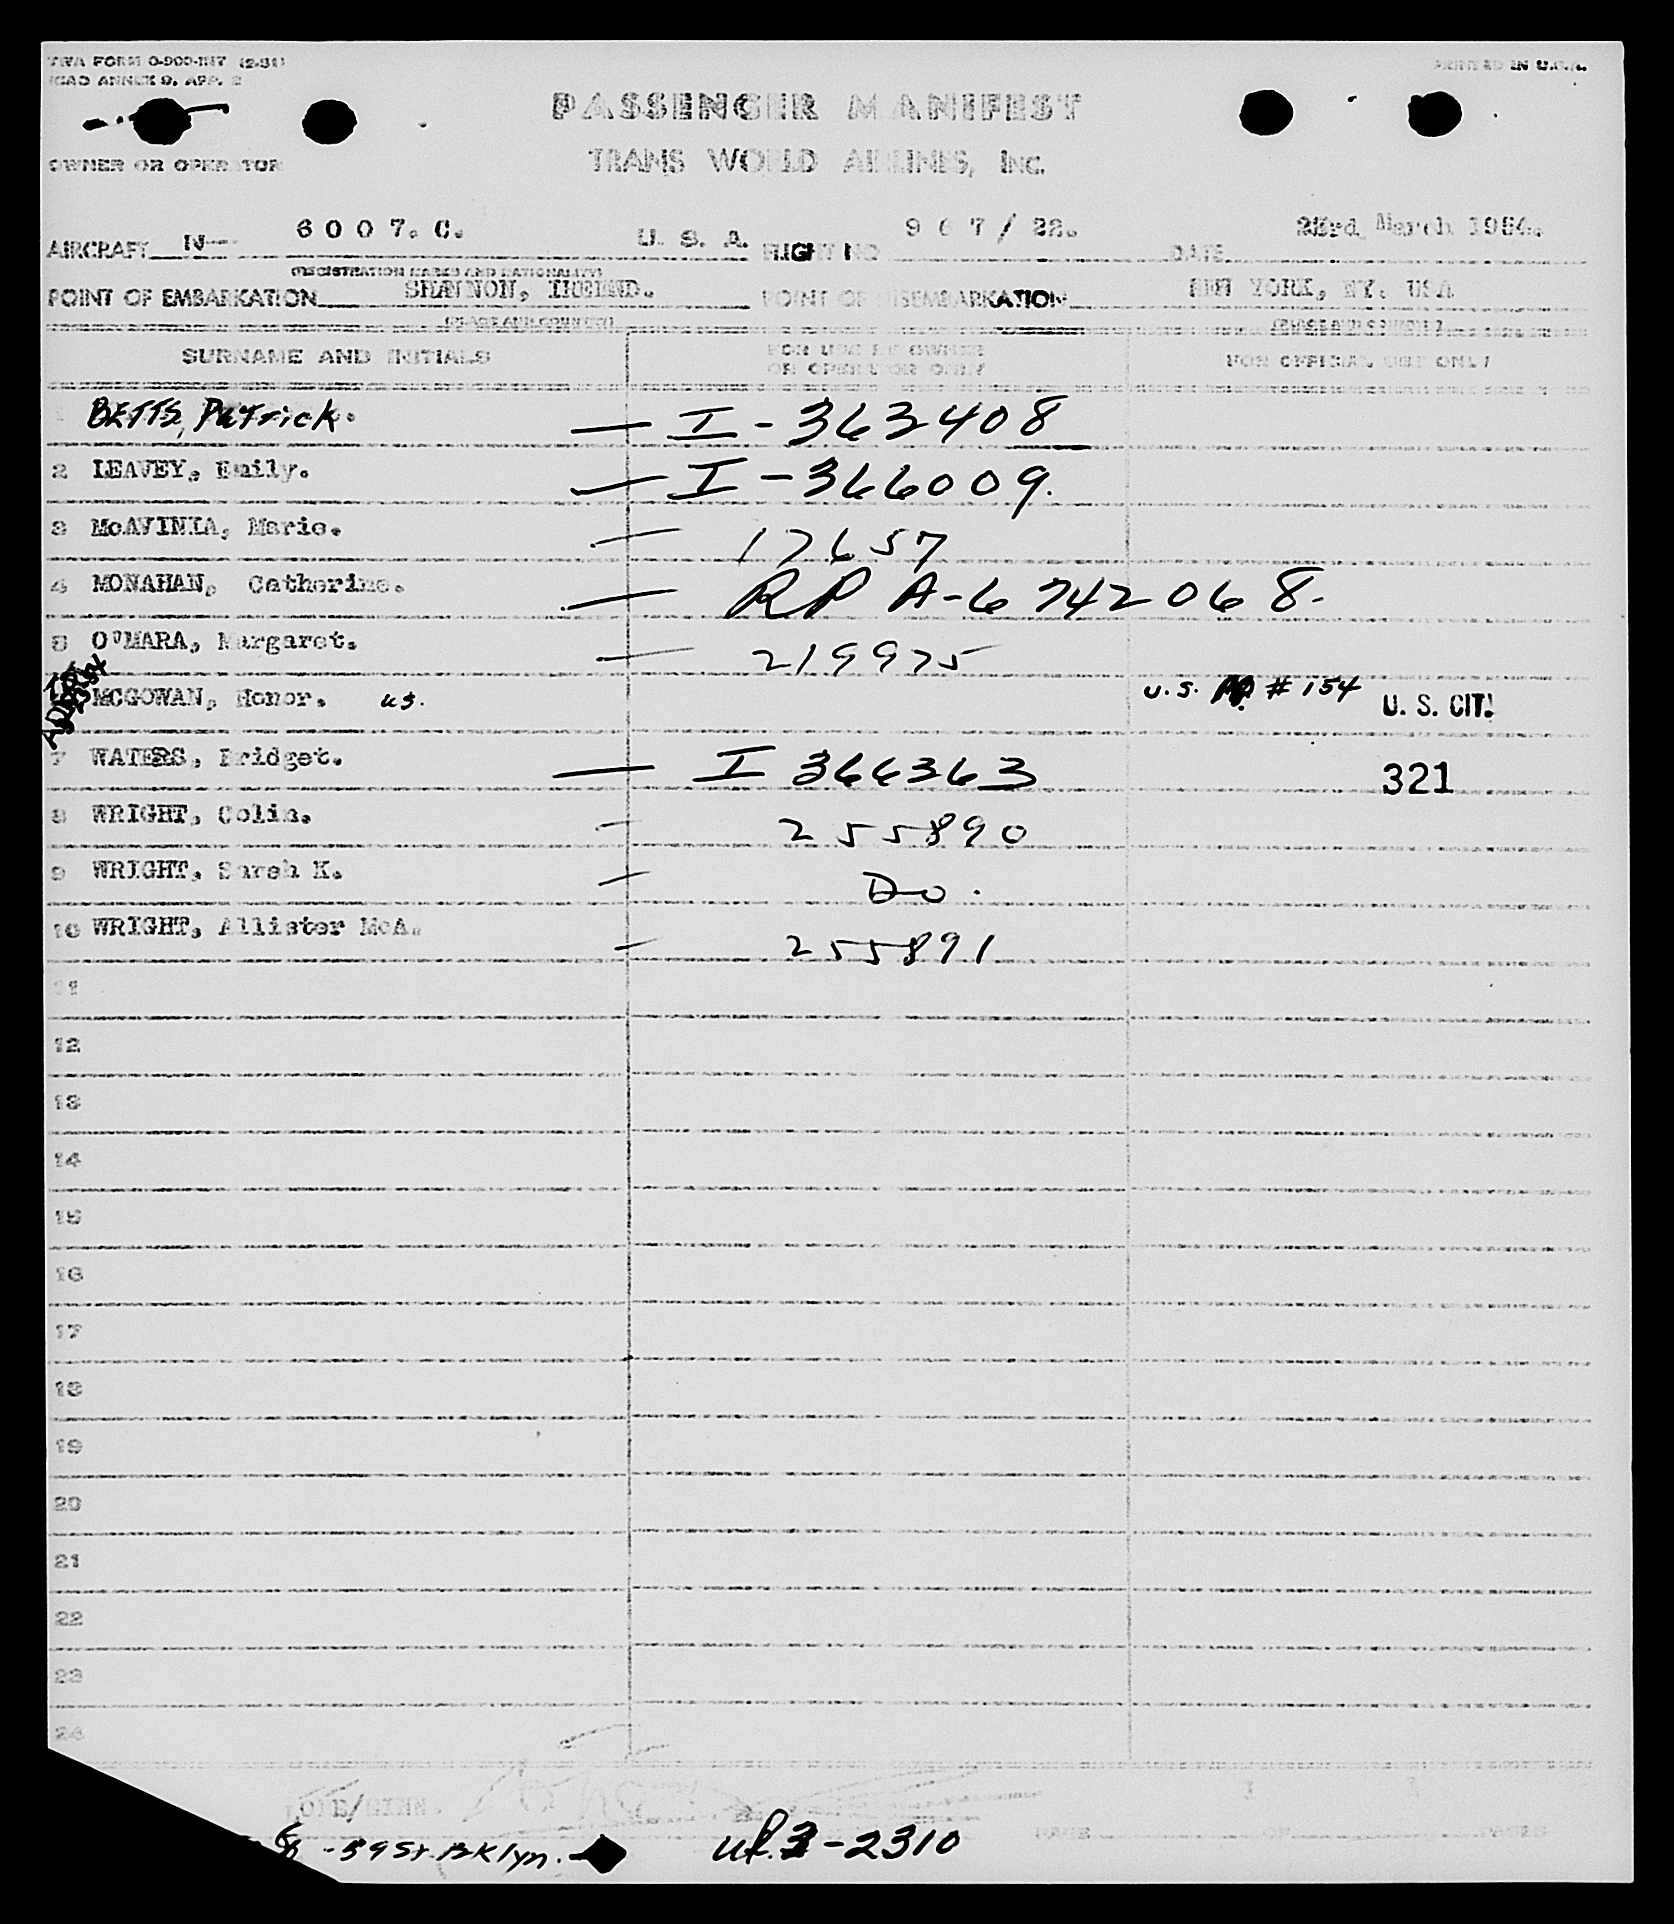 TWA FORM 0-900-INT (2-51)
ICAO ANNEX 9, APP. 2
PRINTED IN U.S.A.
PASSENGER MANIFEST
OWNER OR OPERATOR
TRANS WORLD AIRLINES, INC.
AIRCRAFT N-- 6007.C. U. S. A. FLIGHT NO 967/22. DATE 23rd March 1954.
(REGISTRATION MARKS AND NATIONALITY)
POINT OF EMBARKATION SHANNON, IRELAND. POINT OF DISEMBARKATION NEW YORK, NY. USA
(PLACE AND COUNTRY) (PLACE AND COUNTRY)
SURNAME AND INITIALS FOR USE BY OWNER OR OPERATOR ONLY FOR OFFICIAL USE ONLY
1 BETTS, Patrick. — I-363408
2 LEAVEY, Emily. — I-366009.
3 McAVINIA, Marie. — 17657
4 MONAHAN, Catherine. — RP A-6742068.
5 O'MARA, Margaret. — 219975
MCGOWAN, Honor. us. U.S. # 154 U. S. CIT.
7 WATERS, Bridget. — I 366363 321
8 WRIGHT, Colin. — 255890
9 WRIGHT, Sarah K. — Do.
10 WRIGHT, Allister McA. — 255891
11
12
13
14
15
16
17
18
19
20
21
22
23
24
PAGE OF PAGES
- 59 St. Bklyn. -2310